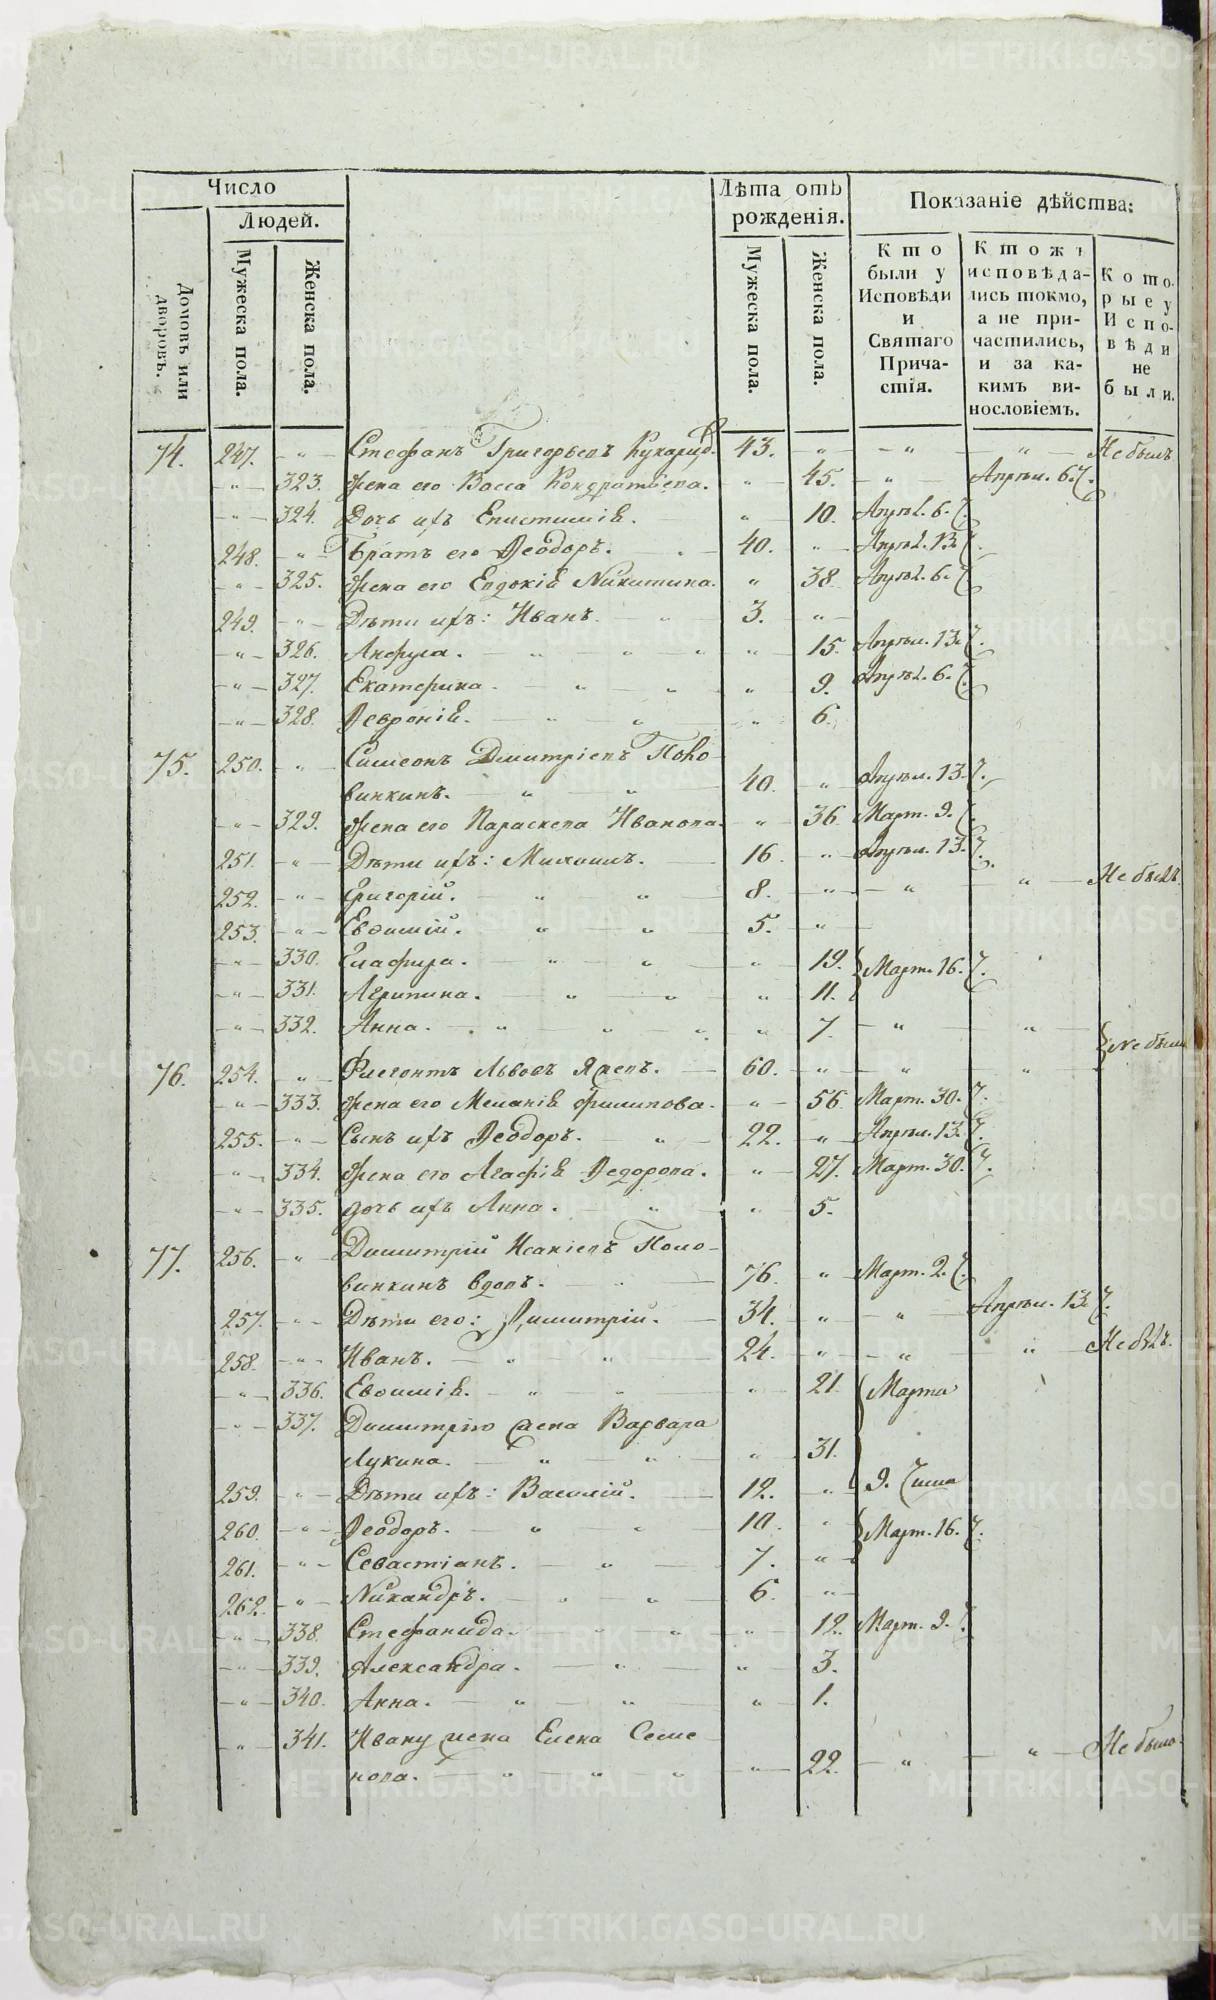 Число
Людей.
Домовъ или дворовъ.
Мужеска пола.
Женска пола.
Лѣта отъ рожденія.
Мужеска пола.
Женска пола.
Показаніе дѣйства:
Кто были у Исповѣди и Святаго Причастія.
Ктожъ исповѣдались токмо, а не причастились, и за какимъ винословіемъ.
Которые у Исповѣди не были.
74. 247. - " - Стефанъ Григорьевъ 43. " - " - " - Не былъ
- " - 323. жена его Васса Кондратьева. - " - 45. - " - Апрѣл. 6. Ч.
- " - 324. Дочь ихъ Епистимія. " - 10. Апрѣл. 6. Ч.
248. " - Братъ его Ѳеодоръ. 40. " - Апрѣл. 13. Ч.
- " - 325. жена его Евдокія Никитина. " 38. Апрѣл. 6. Ч.
249. - " - Дѣти ихъ: Иванъ. 3. " -
- " - 326. Анфуса. " 15. Апрѣл. 13. Ч.
- " - 327. Екатерина. " 9. Апрѣл. 6. Ч.
- " - 328. Ѳевронія. " 6.
75. 250. " - Симеонъ Дмитріевъ Поло-
винкинъ. 40. " - Апрѣл. 13. Ч.
- " - 329. жена его Параскева Иванова. - " - 36 Март. 9. Ч.
251. " - Дѣти ихъ: Михаилъ. 16. " - Апрѣл. 13. Ч.
252. - " - Григорій. 8. - " - " - " - Не былъ.
253. - " - Евѳимій. 5. " -
- " - 330. Глафира. " - 19. Март. 16. Ч.
- " - 331. Агрипина. " 11.
- " - 332. Анна. " 7. - " - "
Не были
76. 254. " - Флегонтъ Львовъ 60. " - " "
- " - 333. жена его Меланія Филипова. - " - 56. Март. 30. Ч.
255. - " - Сынъ ихъ Ѳеодоръ. 22. " - Апрѣл. 13. Ч.
- " - 334. жена его Агафія Ѳедорова. - " - 27. Март. 30. Ч.
- " - 335. дочь ихъ Анна. " 5.
77. 256. " - Димитрій Исакіевъ Поло-
винкинъ вдовъ. 76. " - Март. 2. Ч.
257. - " - Дѣти его: Димитрій. 34. " - " - Апрѣл. 13. Ч.
258. - " - Иванъ. 24. " - " " - Не былъ.
- " - 336. Евѳимія. " 21. Марта
- " - 337. Димитрію жена Варвара
Лукина. " 31.
259. - " - Дѣти ихъ: Василій. 12. " - 9. Числа
260. - " - Ѳеодоръ. 10. " Март. 16. Ч.
261. - " - Севастіанъ. 7. " -
262. - " - Никандръ. 6. " -
- " - 338. Стефанида. " 12. Март. 9. Ч.
- " - 339. Александра. " - 3.
- " - 340. Анна. " - 1.
- " - 341. Ивану жена Елена Семе-
нова. " - 22. - " - " - Не была.
METRIKI.GASO-URAL.RU